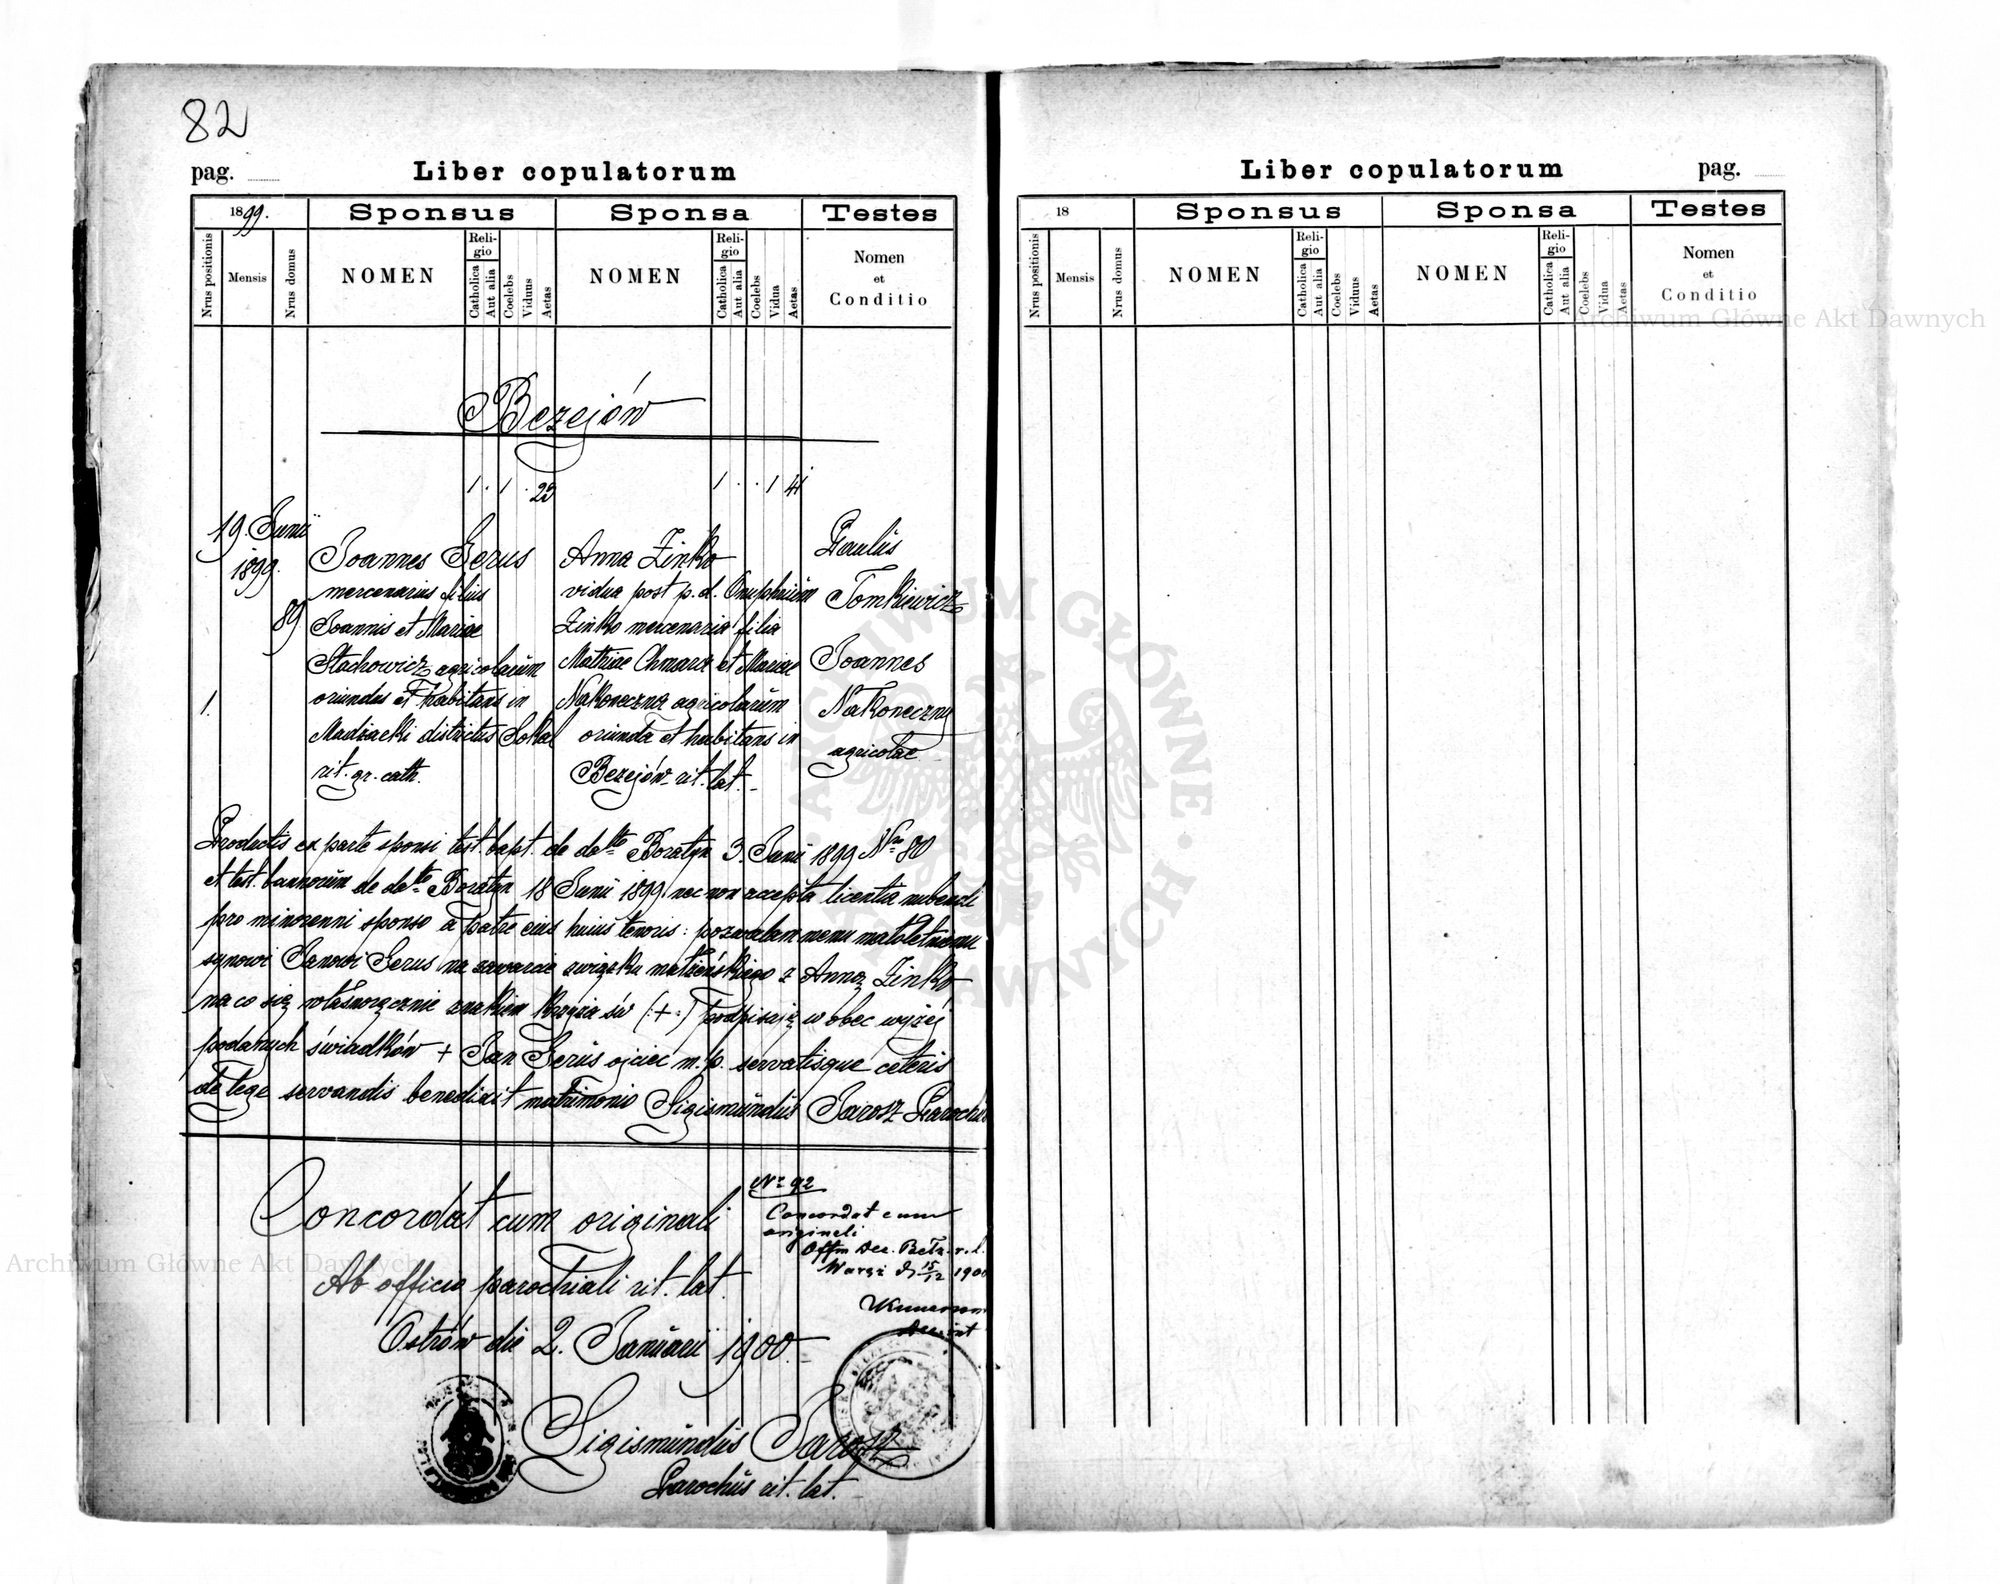 82
pag.
Liber copulatorum
1899.
Sponsus
Sponsa
Testes
Nrus positionis
Mensis
Nrus domus
NOMEN
Religio
Catholica
Aut alia
Coelebs
Viduus
Aetas
NOMEN
Religio
Catholica
Aut alia
Coelebs
Vidua
Aetas
Nomen
et
Conditio
Bezejów
1 . 1 . 23
1 . . 1 41
1.
19. Junii
1899.
89
Joannes Gerus
mercenarius filius
Joannis et Mariae
Stachowicz agricolarum
oriundus et habitans in
Madziarki districtus Sokal
rit. gr. cath.
Anna Zinko
vidua post p. d. Onuphrium
Zinko mercenaria filia
Mathiae Chmara et Mariae
Nakoneczna agricolarum
oriunda et habitans in
Bezejów rit. lat.
Paulus
Tomkiewicz
Joannes
Nakoneczny
agricolae
Productis ex parte sponsi test. bapt. de dato Boratyn 3. Junii 1899 Nro 80
et test. bannorum de dato Boratyn 18 Junii 1899. nec non accepta licentia nubendi
pro minorenni sponso a patre eius huius tenoris: pozwalam memu małoletniemu
synowi Janowi Gerus na zawarcie związku małżeńskiego z Anną Zinko
na co się własnoręcznie znakiem krzyża św (:+:) podpisuję w obec wyżej
podanych świadków + Jan Gerus ojciec m. p. servatisque ceteris
de lege servandis benedixit matrimonio Sigismundus Jarosz Parochus
Concordat cum originali
Ab officio parochiali rit. lat.
Ostrów die 2. Januarii 1900.
Sigismundus Jarosz
Parochus rit. lat.
Nr 92
Concordat cum
origineli
Offm Dec. Bełz. r. l.
Waręż d 15/12 1900
Liber copulatorum
pag.
18
Sponsus
Sponsa
Testes
Nrus positionis
Mensis
Nrus domus
NOMEN
Religio
Catholica
Aut alia
Coelebs
Viduus
Aetas
NOMEN
Religio
Catholica
Aut alia
Coelebs
Vidua
Aetas
Nomen
et
Conditio
Archiwum Główne Akt Dawnych
Archiwum Główne Akt Dawnych
ARCHIWUM GŁÓWNE AKT DAWNYCH